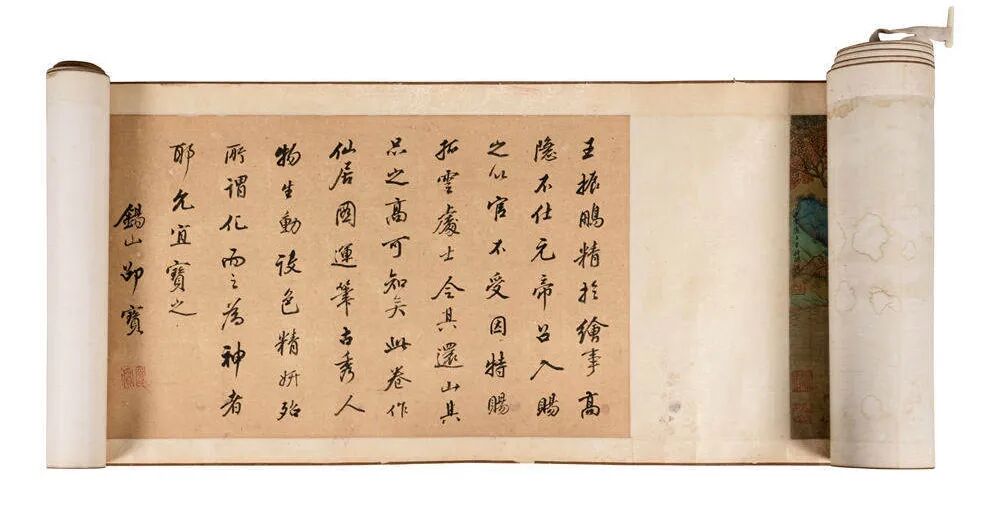 王振鵬精於繪事高
隱不仕元帝召入賜
之以官不受因特賜
拓雲處士令其還山其
品之高可知矣此卷作
仙居圖運筆古秀人
物生動設色精妍殆
所謂化而之為神者
耶允宜寶之
錫山邵寶